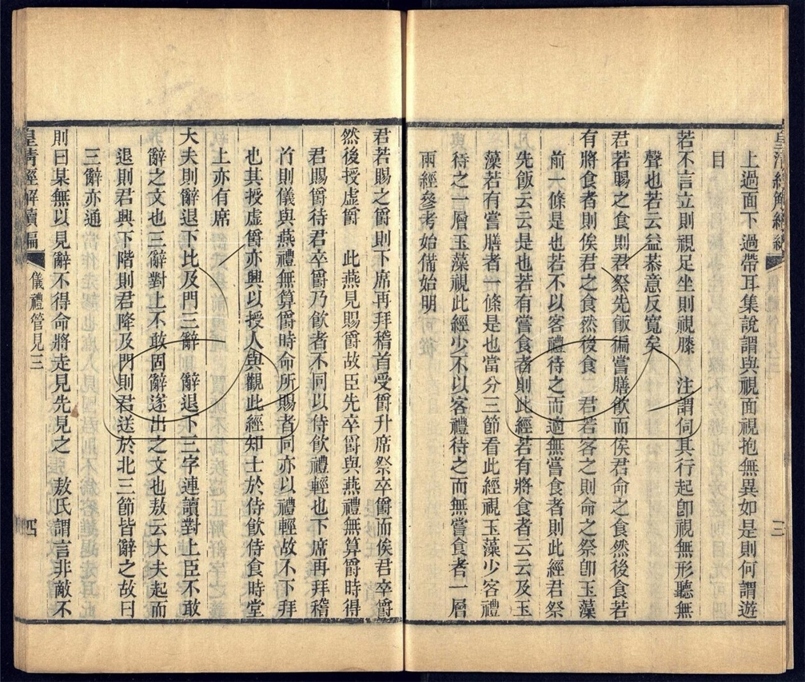 上過面下過帶耳集說謂與視面視抱無異如是則何謂遊
目
若不言立則視足坐則視膝　注謂伺其行起卽視無形聽無
聲也若云益恭意反寬矣
君若賜之食則君祭先飯徧嘗膳飲而俟君命之食然後食若
有將食者則俟君之食然後食　君若客之則命之祭卽玉藻
前一條是也若不以客禮待之而適無嘗食者則此經君祭
先飯云云是也若有嘗食者則此經若有將食者云云及玉
藻若有嘗膳者一條是也當分三節看此經視玉藻少客禮
待之一層玉藻視此經少不以客禮待之而無嘗食者一層
兩經參考始備始明
皇清經解續編
三
君若賜之爵則下席再拜稽首受爵升席祭卒爵而俟君卒爵
然後授虛爵　此燕見賜爵故臣先卒爵與燕禮無算爵時得
君賜爵待君卒爵乃飲者不同以侍飲禮輕也下席再拜稽
首則儀與燕禮無算爵時命所賜者同亦以禮輕故不下拜
也其授虛爵亦興以授人與觀此經知士於侍飲侍食時堂
上亦有席
大夫則辭退下比及門三辭　辭退下三字連讀對上臣不敢
辭之文也三辭對上不敢固辭遂出之文也敖云大夫起而
退則君興下階則君降及門則君送於北三節皆辭之故曰
三辭亦通
皇清經解續編　儀禮管見三　四
則曰某無以見辭不得命將走見先見之　敖氏謂言非敵不